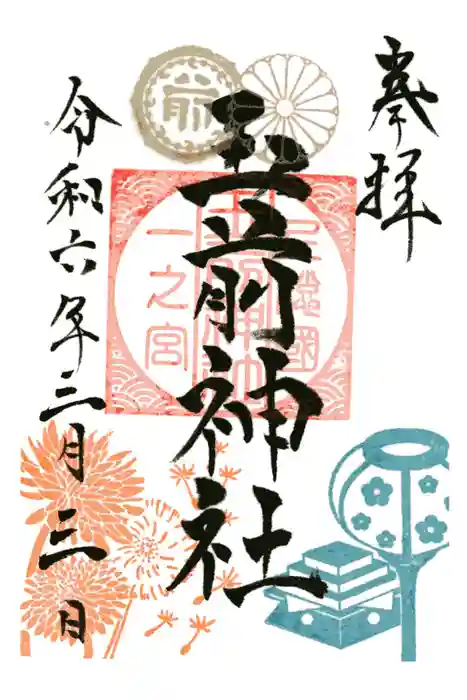 奉拝
玉前神社
令和六年三月三日
前
上總國
玉前神社
一之宮